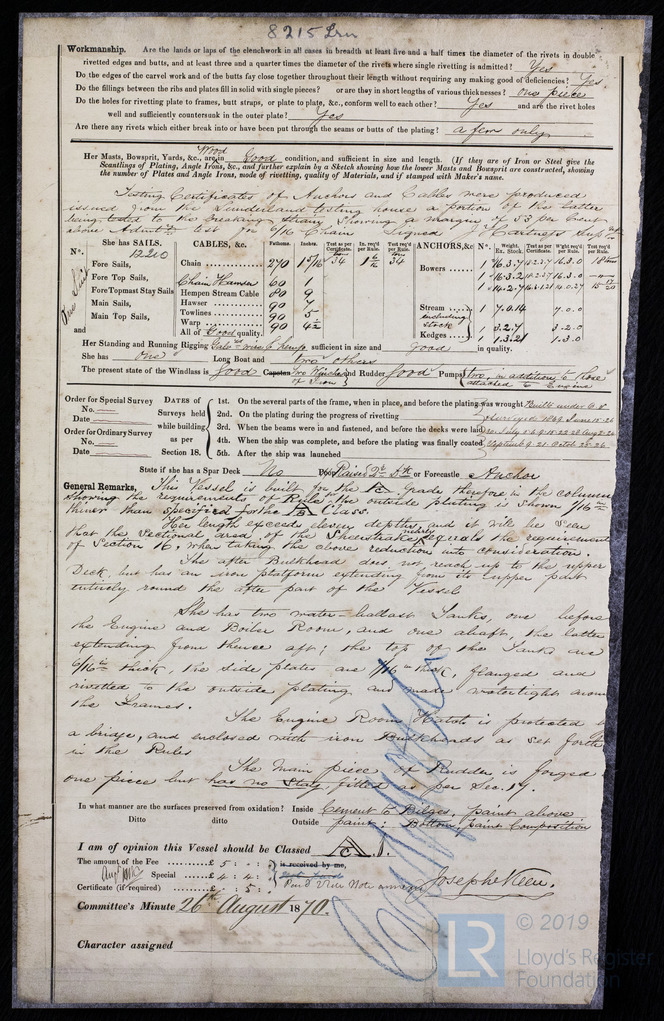 8215 Irn
Workmanship. Are the lands or laps of the clenchwork in all cases in breadth at least five and a half times the diameter of the rivets in double
rivetted edges and butts, and at least three and a quarter times the diameter of the rivets where single rivetting is admitted? Yes
Do the edges of the carvel work and of the butts fay close together throughout their length without requiring any making good of deficiencies? Yes.
Do the fillings between the ribs and plates fill in solid with single pieces? or are they in short lengths of various thicknesses? One piece
Do the holes for rivetting plate to frames, butt straps, or plate to plate, &c., conform well to each other? Yes and are the rivet holes
well and sufficiently countersunk in the outer plate? Yes
Are there any rivets which either break into or have been put through the seams or butts of the plating? a few only
Her Masts, Bowsprit, Yards, &c., are Wood in Good condition, and sufficient in size and length. (If they are of Iron or Steel give the
Scantlings of Plating, Angle Irons, &c., and further explain by a Sketch showing how the lower Masts and Bowsprit are constructed, showing
the number of Plates and Angle Irons, mode of rivetting, quality of Materials, and if stamped with Maker's name.
Testing Certificates of Anchors and Cables were produced
issued from the Sunderland testing house a portion of the latter
being tested to the breaking strain showing a margin of 53 per Cent
above Admty test for 6/16 Chain Signed J Hartness Supt
N°. She has SAILS. CABLES, &c. Fathoms. Inches. Test as per Certificate. In. req'd per Rule. Test req'd per Rule. ANCHORS, &c N°. Weight. Ex. Stock Test as per Certificate W'ght req'd per Rule. Test req'd per Rule
Fore Sails, Chain 270 1 5/16 34 1 6/16 34 Bowers 1 16.3.7 16.3.0 18
Fore Top Sails, Chain Hawser 60 1 1 16.3.2 16.3.0
Fore Topmast Stay Sails Hempen Stream Cable 80 9 1 14.2.7 14.0.27
Main Sails, Hawser 90 7 Stream 1 7.0.14 7.0.0
Main Top Sails, Towlines 90 5 including
Warp 90 4½ stock 1 3.2.7 3.2.0
and All of Good quality. Kedges 1 1.3.21 1.3.0
Her Standing and Running Rigging wire & hemp sufficient in size and good in quality.
She has one Long Boat and two others
The present state of the Windlass is Good Capstan Two Winches of Iron and Rudder Good Pumps two in addition to those
attached to Engine
Order for Special Survey
No.
Date
Order for Ordinary Survey
No.
Date
DATES of Surveys held while building as per Section 18.
1st. On the several parts of the frame, when in place, and before the plating was wrought Built under
2nd. On the plating during the progress of rivetting 1869
3rd. When the beams were in and fastened, and before the decks were laid
4th. When the ship was complete, and before the plating was finally coated
5th. After the ship was launched
State if she has a Spar Deck No Poop Raised Qr Dk or Forecastle Anchor
General Remarks, This Vessel is built for the A grade therefore in the column
showing the requirements of Rule for the outside plating is shown 1/16
thinner than specified for the A Class.
Her length exceeds eleven depths, and it will be seen
that the sectional area of the Sheerstrake nearly equals the requirements
of Section 16, when taking the above reduction into consideration.
The after Bulkhead does not reach up to the upper
Deck, but has an iron platform extending from its upper part
entirely round the after part of the Vessel
She has two water ballast Tanks, one before
the Engine and Boiler Room, and one abaft, the latter
extending from thence aft; the top of the Tanks are
6/16 in thick the side plates are 7/16 in thick, flanged and
rivetted to the outside plating and made watertight around
the Frames.
The Engine Room Hatch is protected by
a bridge, and enclosed with iron Bulkheads as set forth
in the Rules
The main piece of Rudder is forged
one piece but has no Stays fitted as per Sec. 17.
In what manner are the surfaces preserved from oxidation? Inside Cement to Bilges, paint above
Ditto ditto Outside paint: Bottom: paint Composition
I am of opinion this Vessel should be Classed A 1.
The amount of the Fee £ 5 : :
Special £ 4 : 4 :
Certificate (if required) : 5 :
is received by me,
Joseph Keen.
Committee's Minute 26th August 1870.
Character assigned
© 2019
LR
Lloyd's Register
Foundation